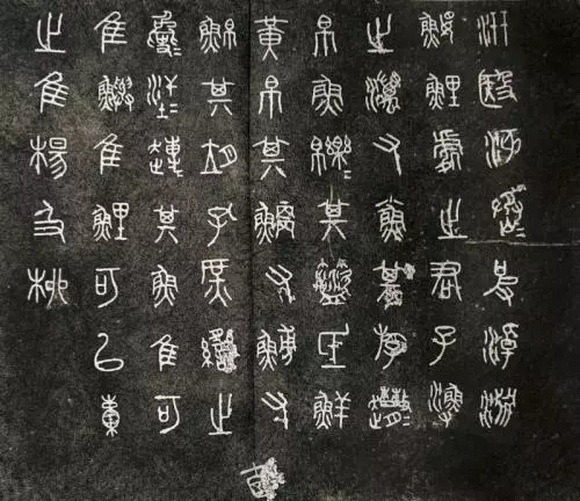 汧殹沔沔烝皮淖淵
鰋鯉處之君子漁
之澫又小魚其斿𨅬𨅬
帛魚皪皪其盜氐鮮
黃帛其鯿又鱄又
鮊其𦚏孔庶臠之
𡙇𡙇汗汗趍趍其魚隹可
隹鱮隹鯉可㠯橐
之隹楊及柳